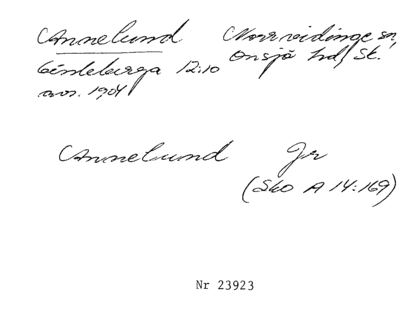 Annelund Norrvidinge sn,
Gårdeburga 12:10 Onsjö hd, Sk.
avs. 1904
Annelund Gr
(Sko A 14:169)
Nr 23923